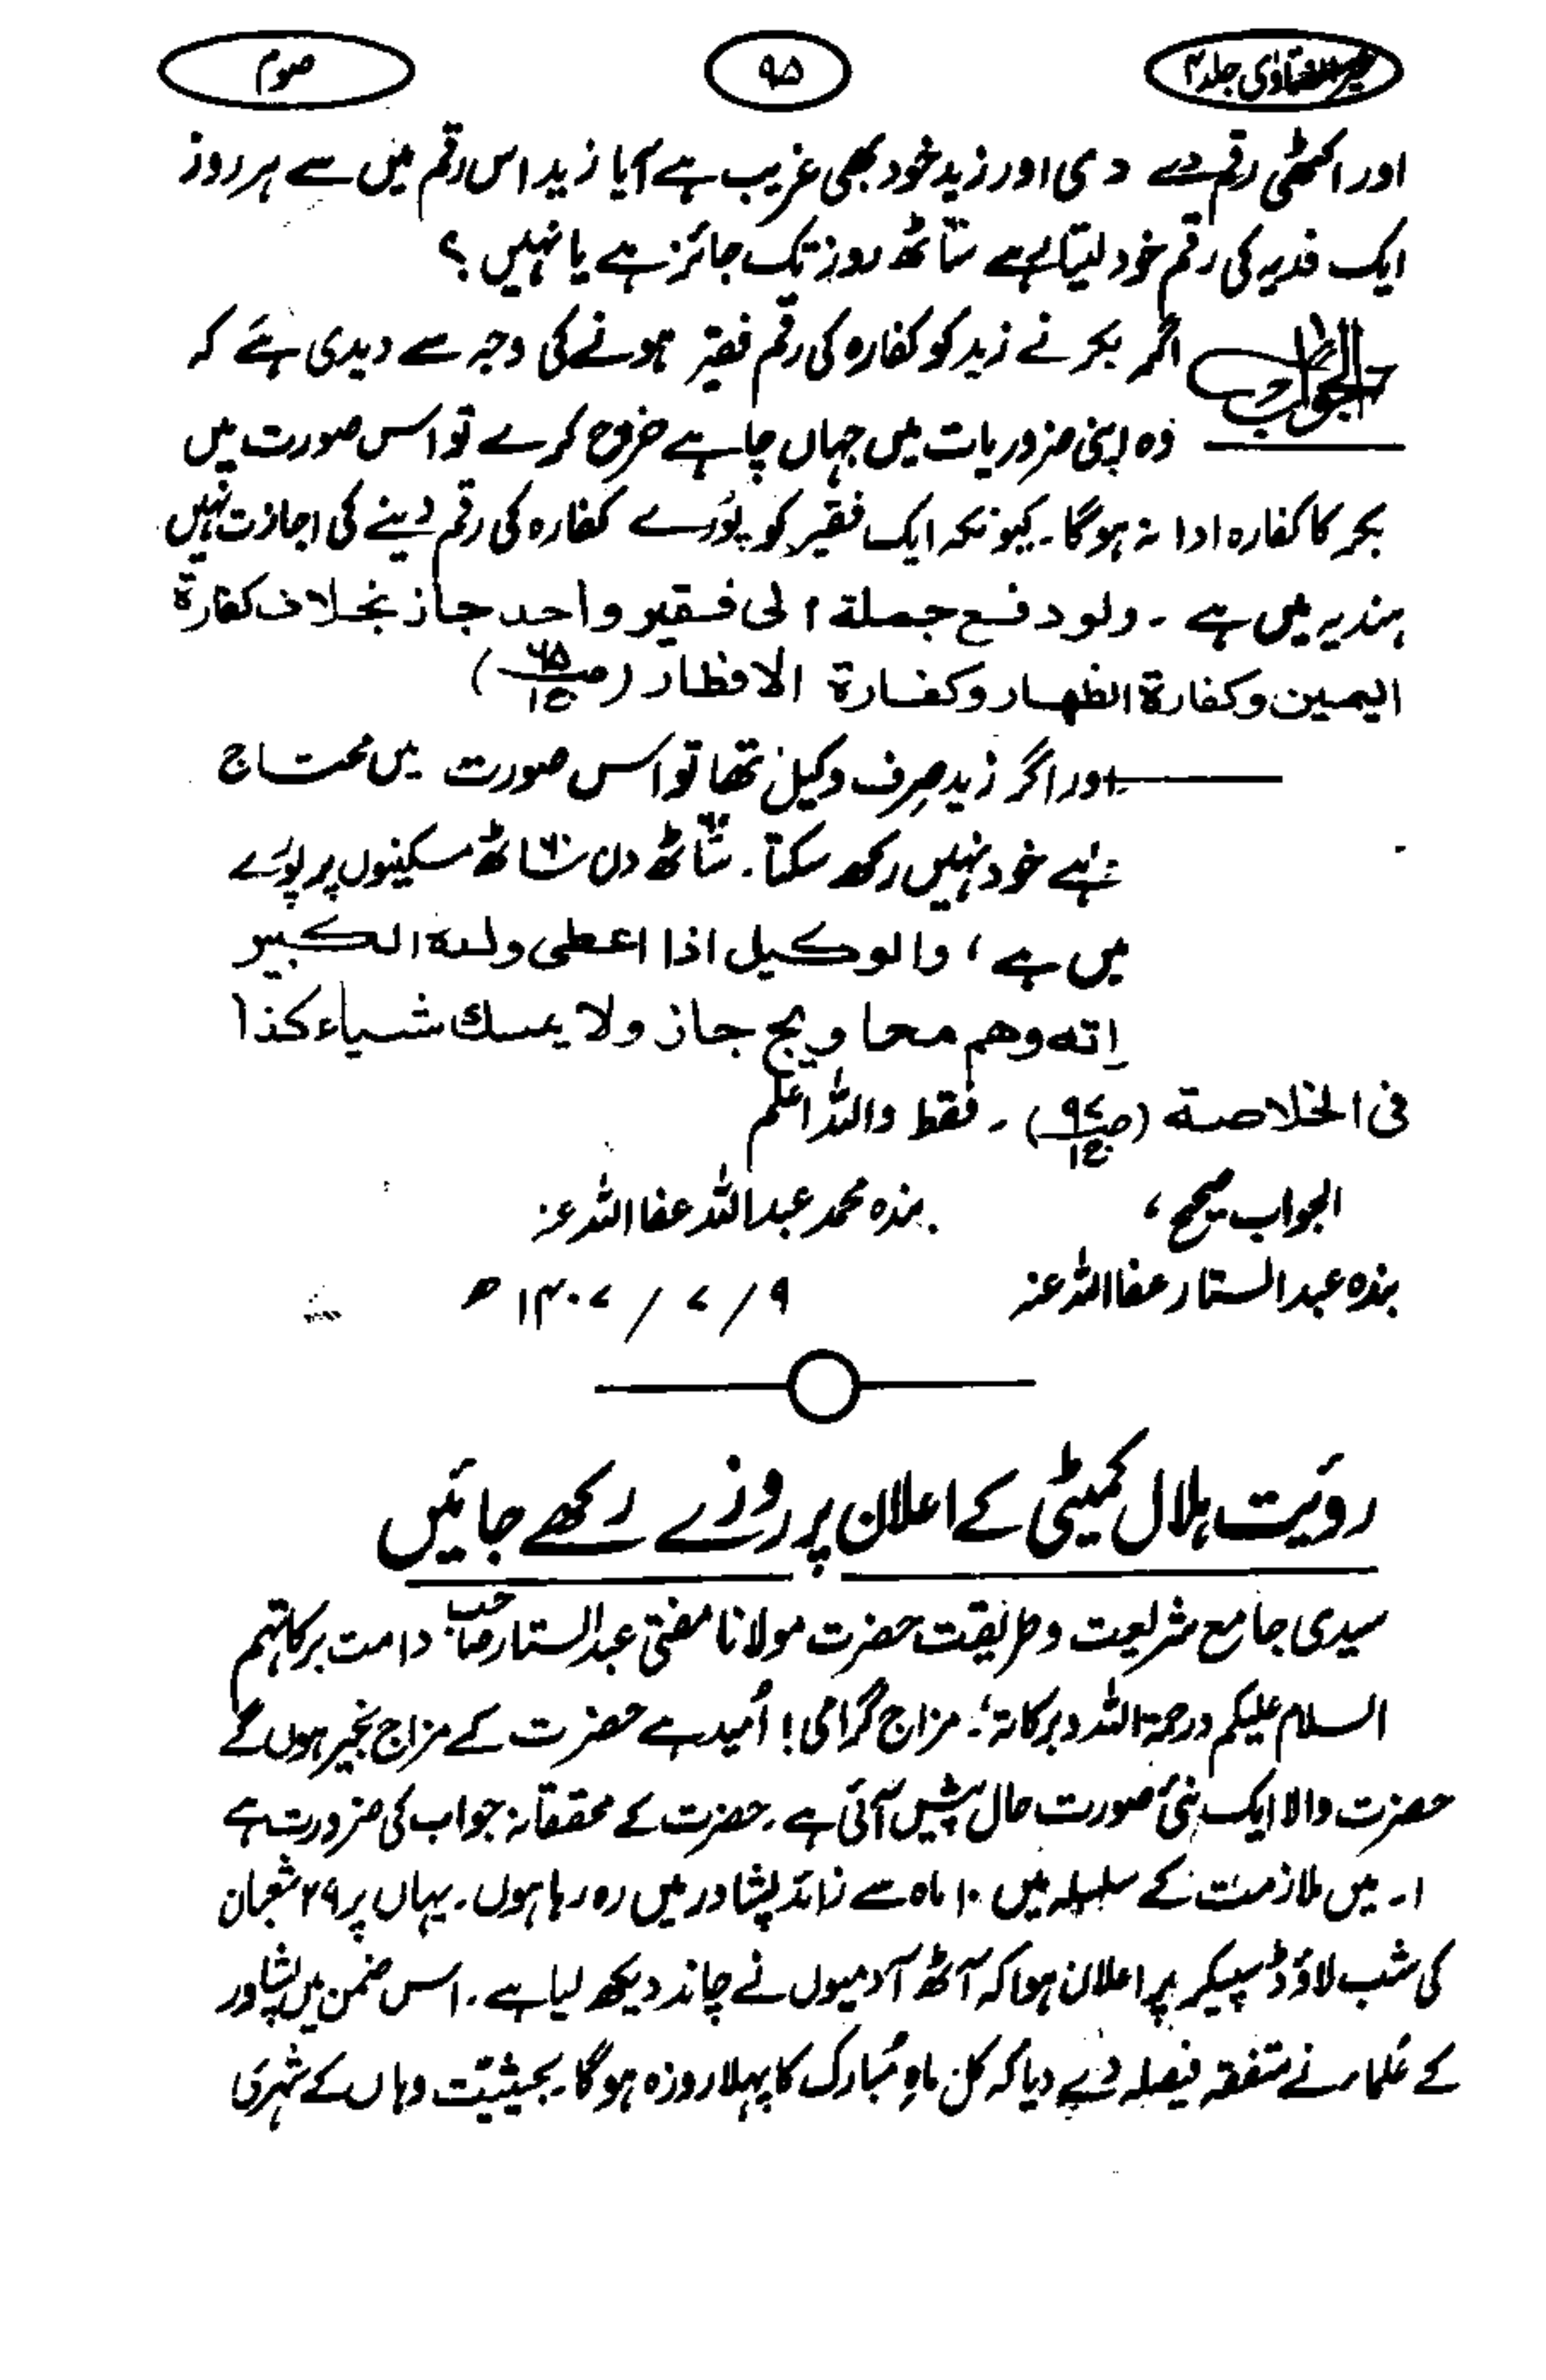 خیر الفتاویٰ جلد ۴
۹۵
صوم
اور اکٹھی رقم دے دی اور زید خود بھی غریب ہے آیا زید اس رقم میں سے ہر روز
ایک فدیہ کی رقم خود لیتا ہے ساٹھ روز تک جائز ہے یا نہیں ؟
الجواب اگر بکر نے زید کو کفارہ کی رقم فقیر ہونے کی وجہ سے دیدی ہے کہ
وہ اپنی ضروریات میں جہاں چاہے خرچ کرے تو اس صورت میں
بکر کا کفارہ ادا نہ ہوگا۔ کیونکہ ایک فقیر کو پورے کفارہ کی رقم دینے کی اجازت نہیں
ہندیہ میں ہے ۔ ولو دفع جملة الی فقیر واحد جاز بخلاف کفارة
الیمین وکفارة الظهار وکفارة الافطار (ص۶۵ ج۱)
اور اگر زید صرف وکیل تھا تو اس صورت میں محتاج
خود نہیں رکھ سکتا۔ ساٹھ دن ساٹھ مسکینوں پر پورے
میں ہے ، والوکیل اذا اعطی ولده الکبیر
اته وهم محاویج جاز ولا یمسك شیاء کذا
فی الخلاصة (ص۹۷ ج۱) ۔ فقط واللہ اعلم
الجواب صحیح ، بندہ محمد عبداللہ عفا اللہ عنہ
بندہ عبدالستار عفا اللہ عنہ ۹ / ۷ / ۱۴۰۷ ھ
رؤیت ہلال کمیٹی کے اعلان پر روزے رکھے جائیں
سیدی جامع شریعت وطریقت حضرت مولانا مفتی عبدالستار صاحب دامت برکاتہم
السلام علیکم ورحمۃ اللہ وبرکاتہ؛ مزاج گرامی! اُمید ہے حضرت کے مزاج بخیر ہوں گے
حضرت والا ایک نئی صورت حال پیش آئی ہے ۔ حضرت کے محققانہ جواب کی ضرورت ہے
۱۔ میں ملازمت کے سلسلہ میں ۱۰ ماہ سے زائد پشاور میں رہ رہا ہوں۔ یہاں پر ۲۹ شعبان
کی شب لاؤڈ سپیکر پر اعلان ہوا کہ آٹھ آدمیوں نے چاند دیکھ لیا ہے۔ اس ضمن میں پشاور
کے عُلماء نے متفقہ فیصلہ دے دیا کہ کل ماہِ مُبارک کا پہلا روزہ ہوگا۔ بحیثیّت وہاں کے شہری